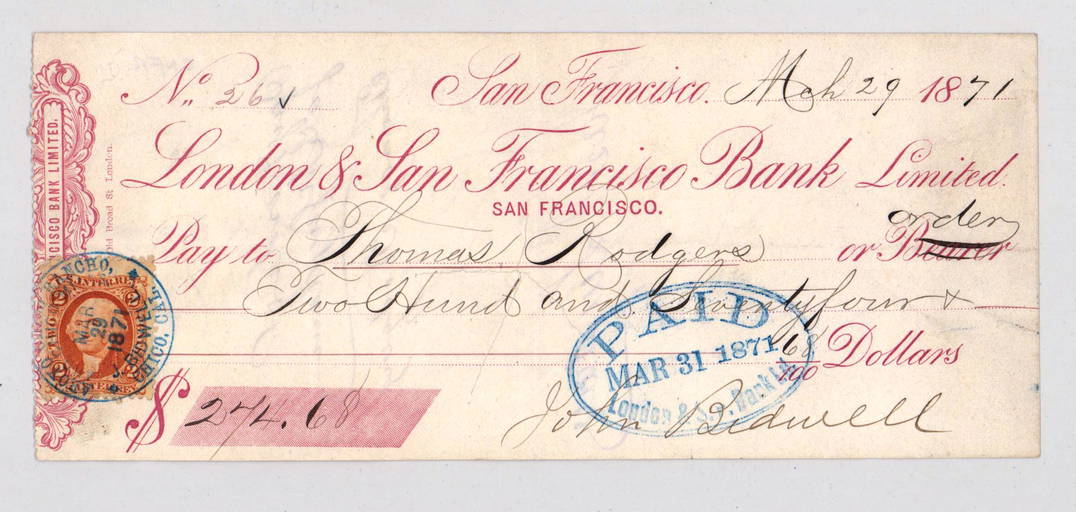 No. 26
San Francisco. Mch 29 1871
London & San Francisco Bank Limited.
SAN FRANCISCO.
Pay to Thomas Rodgers or Bearer order
Two Hund and Seventyfour &
68/100 Dollars
$ 274.68
John Bidwell
PAID
MAR 31 1871
London & S.F. Bank Ltd
CISCO BANK LIMITED.
Old Broad St. London.
RANCHO,
CHICO, CAL.
J. BIDWELL
MAR
29
1871
TWO
INTER. REV.